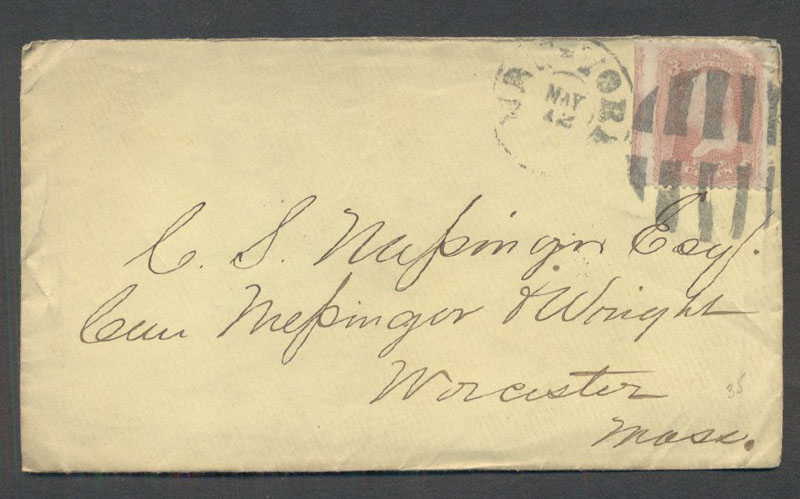 NEW YORK
MAY
12
C. S. Messinger Esq.
Care Messinger & Wright
Worcester
Mass.
35